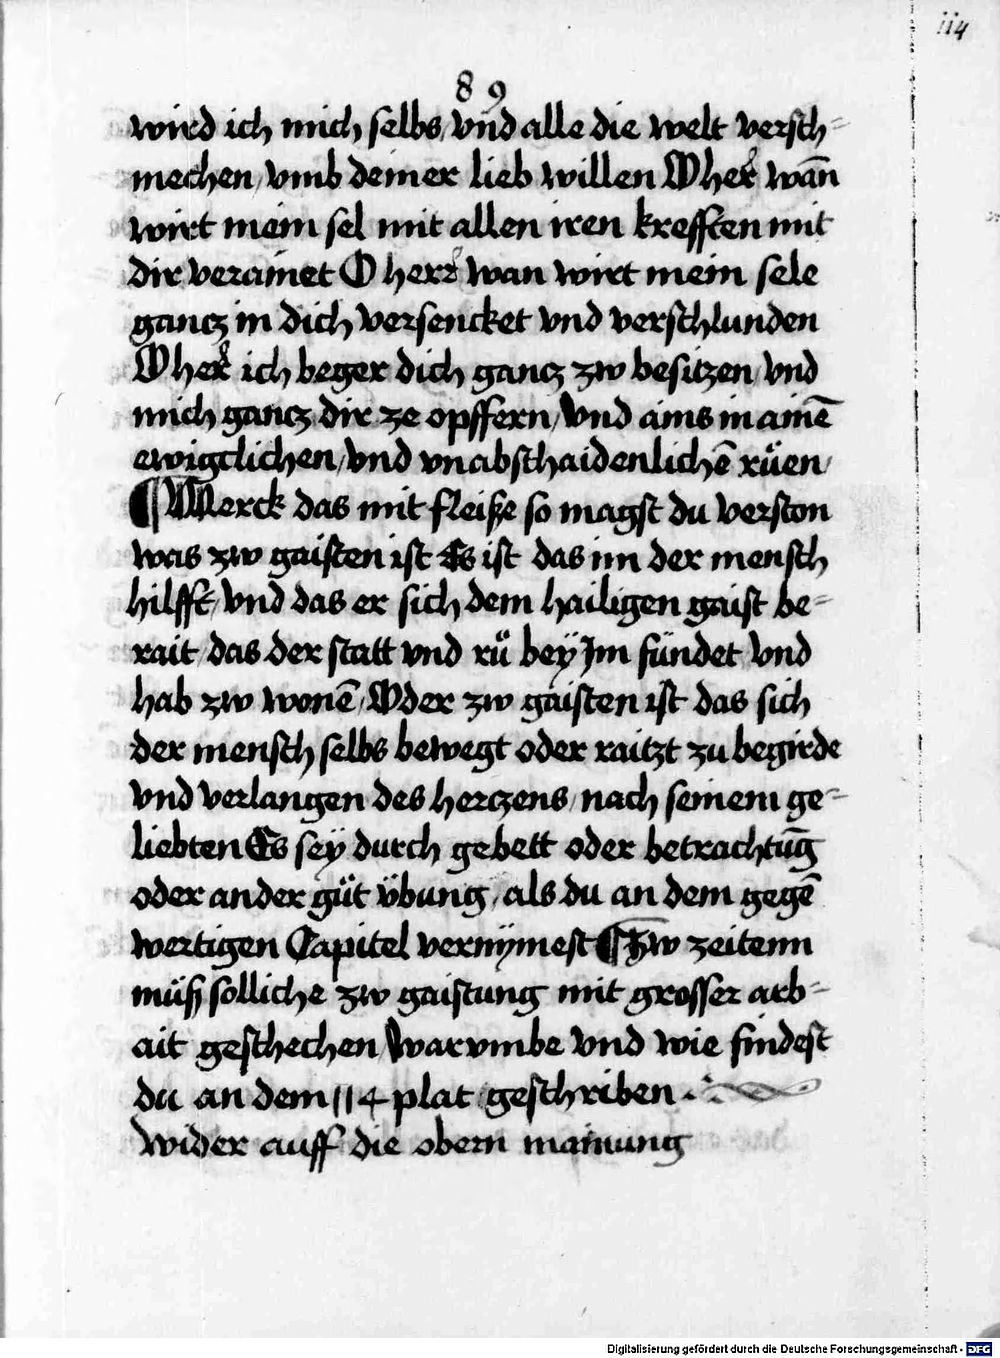 114
89
wird ich mich selbs, vnd alle die welt versch-
mechen, vmb deiner lieb willen O her wān
wirt mein sel mit allen iren krefften mit
dir verainet O herr wan wirt mein sele
gancz in dich versencket vnd verschlunden
O her ich beger dich gancz zw besitzen, vnd
mich gancz dir ze opffern, vnd ains in ainē
ewigclichen, vnd vnabschaidenlichē rüen,
¶ Merck das mit fleiße so magst du verston
was zw gaisten ist Es ist das im der mensch
hilfft, vnd das er sich dem hailigen gaist be-
rait, das der statt vnd rü beÿ Im fündet, vnd
hab zw wonē, Oder zw gaisten ist das sich
der mensch selbs bewegt oder raitzt zu begirde
vnd verlangen des herczens, nach seinem ge-
liebten Es seÿ durch gebett oder betrachtūg
oder ander güt übung, als du an dem gegē
wertigen Capitel vernÿmest ¶ Zw zeitenn
müß solliche zw gaistung mit grosser arb-
ait geschechen Warvmbe vnd wie findest
du an dem 114 plat geschriben.
Wider auff die obern mainung
Digitalisierung gefördert durch die Deutsche Forschungsgemeinschaft - DFG